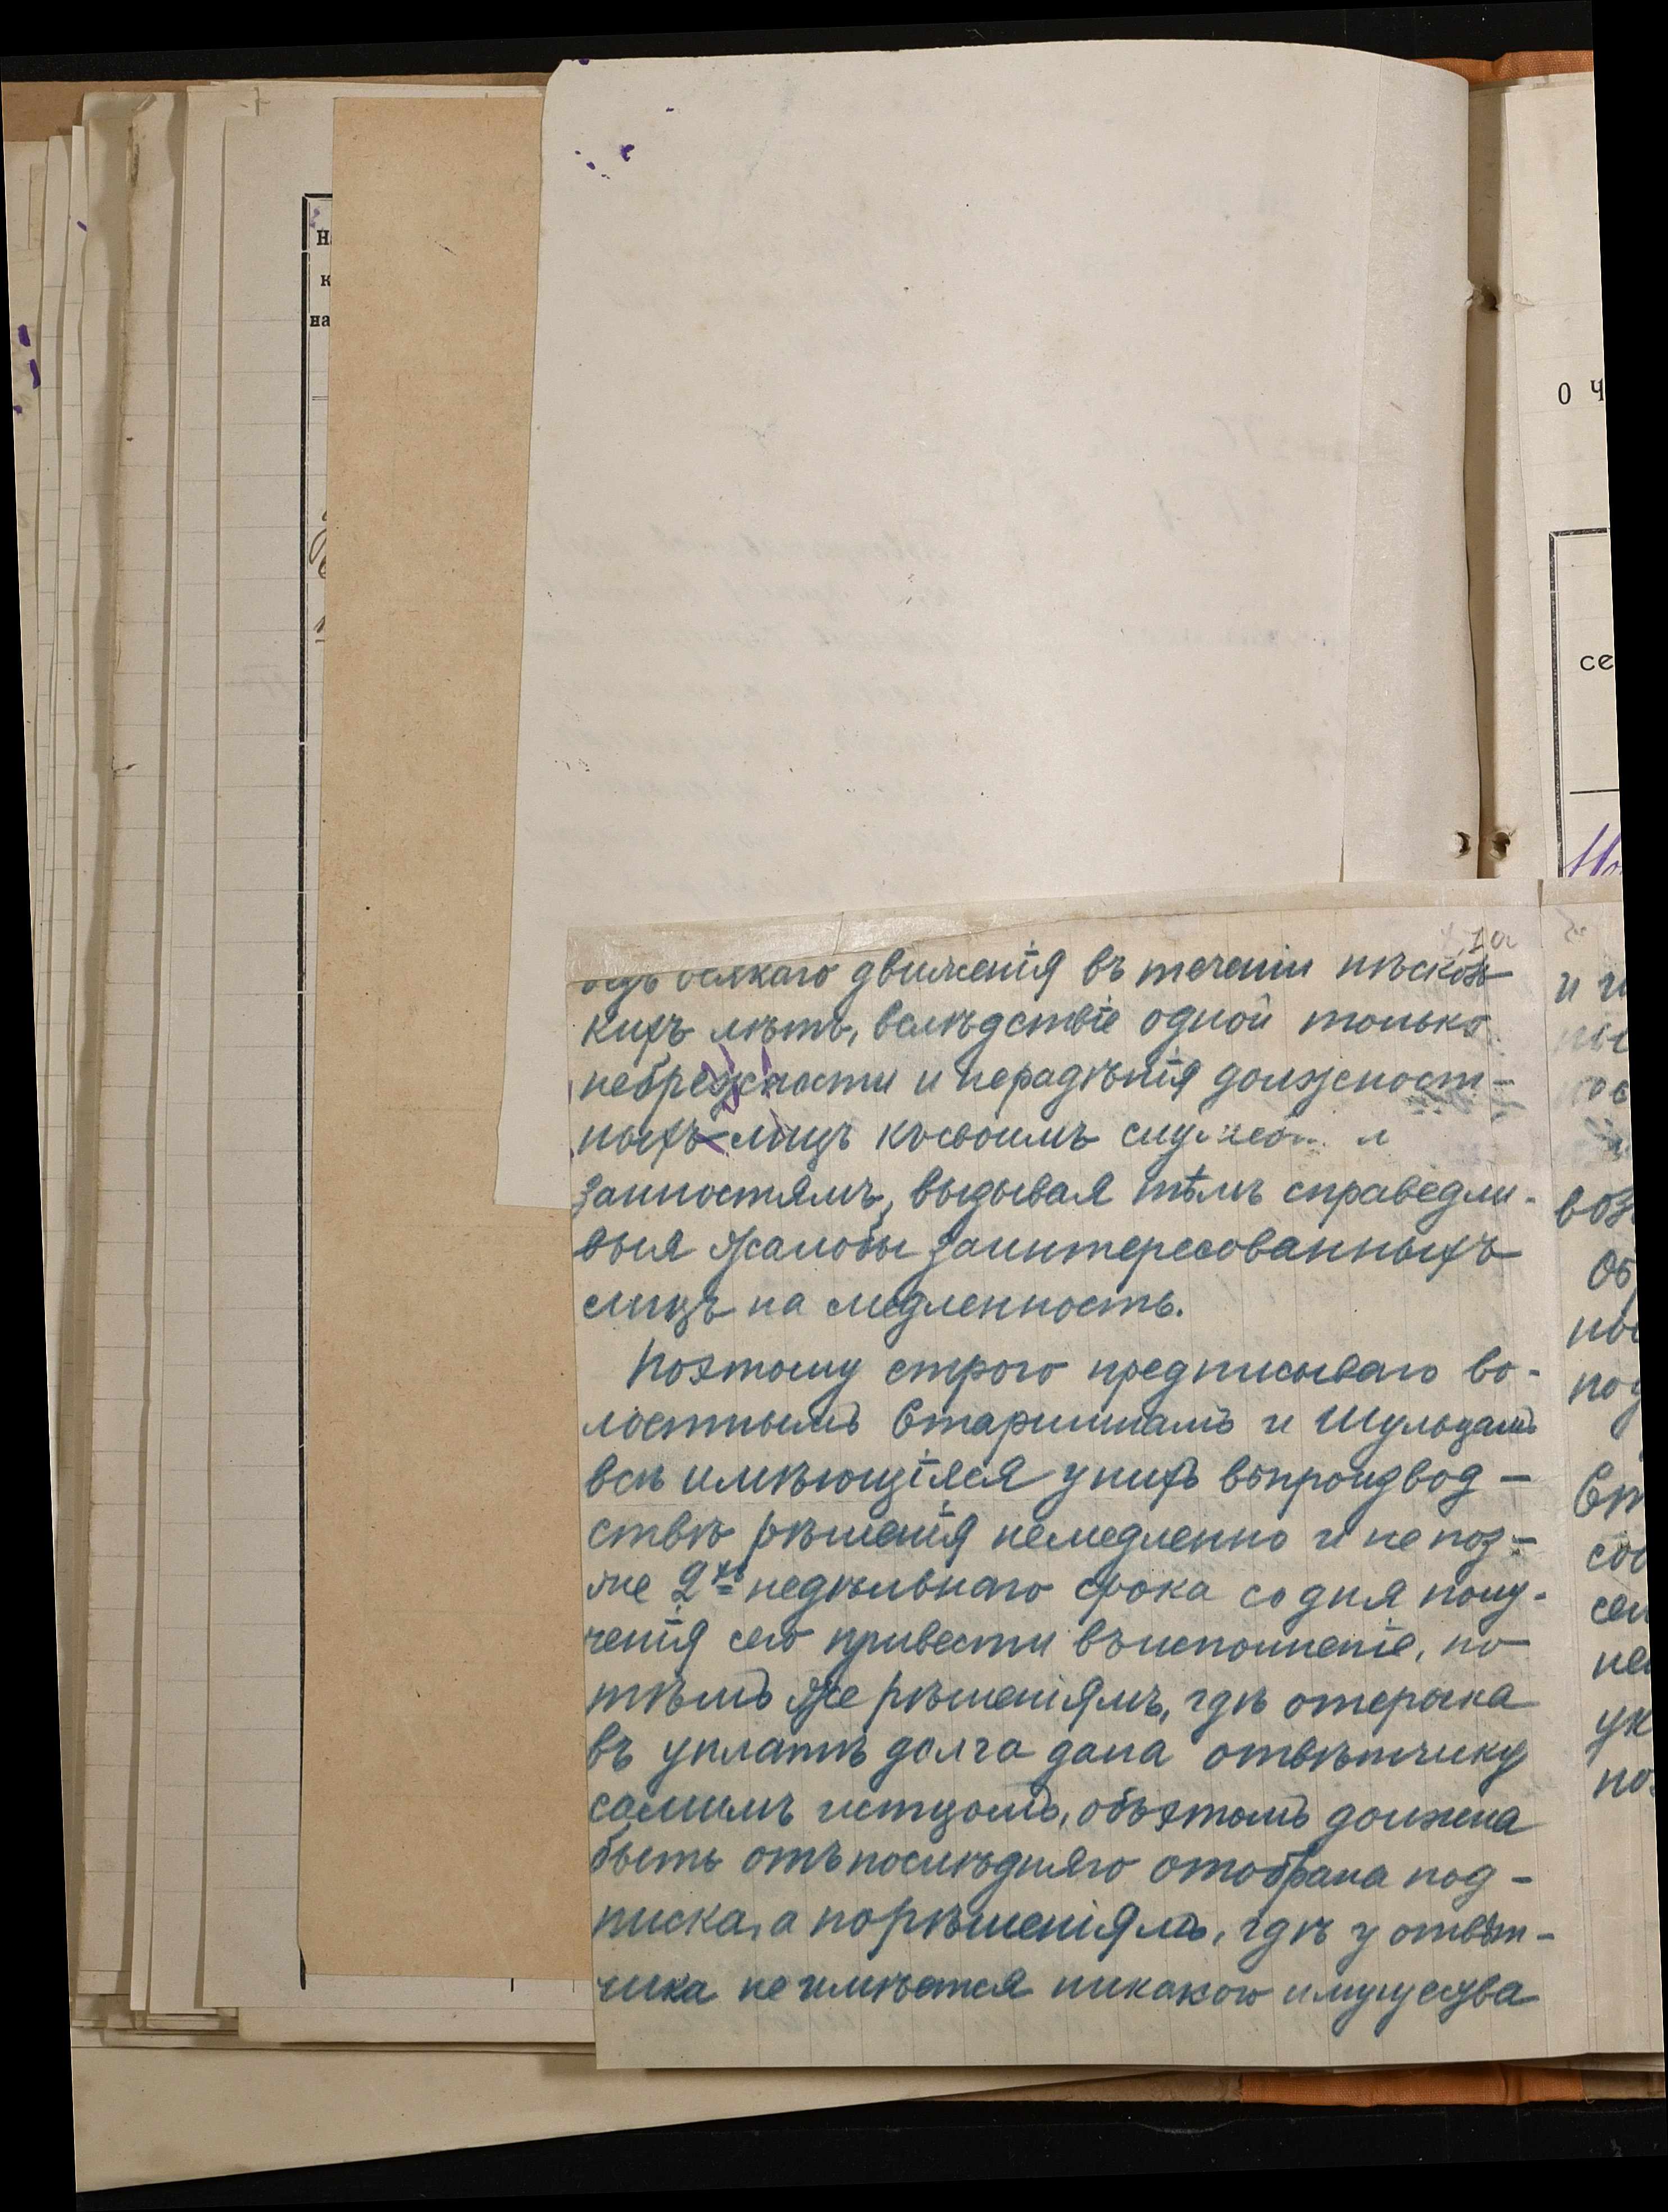 н
к
на
о ч
се
1а
всякаго движенія въ теченіи нѣсколь
кихъ лѣтъ, вслѣдствіе одной только
небрежности и нерадѣнія должност-
ныхъ лицъ къ своимъ
занностямъ, вызывая тѣмъ справедли-
выя жалобы заинтересованныхъ
лицъ на медленность.
Поэтому строго предписываю во-
лостнымъ Старшинамъ и Шульцамъ
всѣ имѣющіяся у нихъ въ производ-
ствѣ рѣшенія немедленно и не поз-
же 2хъ недѣльнаго срока со дня полу-
ченія сего привести въ исполненіе, по
тѣмъ же рѣшеніямъ, гдѣ отсрочка
въ уплатѣ долга дана отвѣтчику
самимъ истцомъ, объ этомъ должна
быть отъ послѣдняго отобрана под-
писка, а по рѣшеніямъ, гдѣ у отвѣт-
чика не имѣется никакого имущества